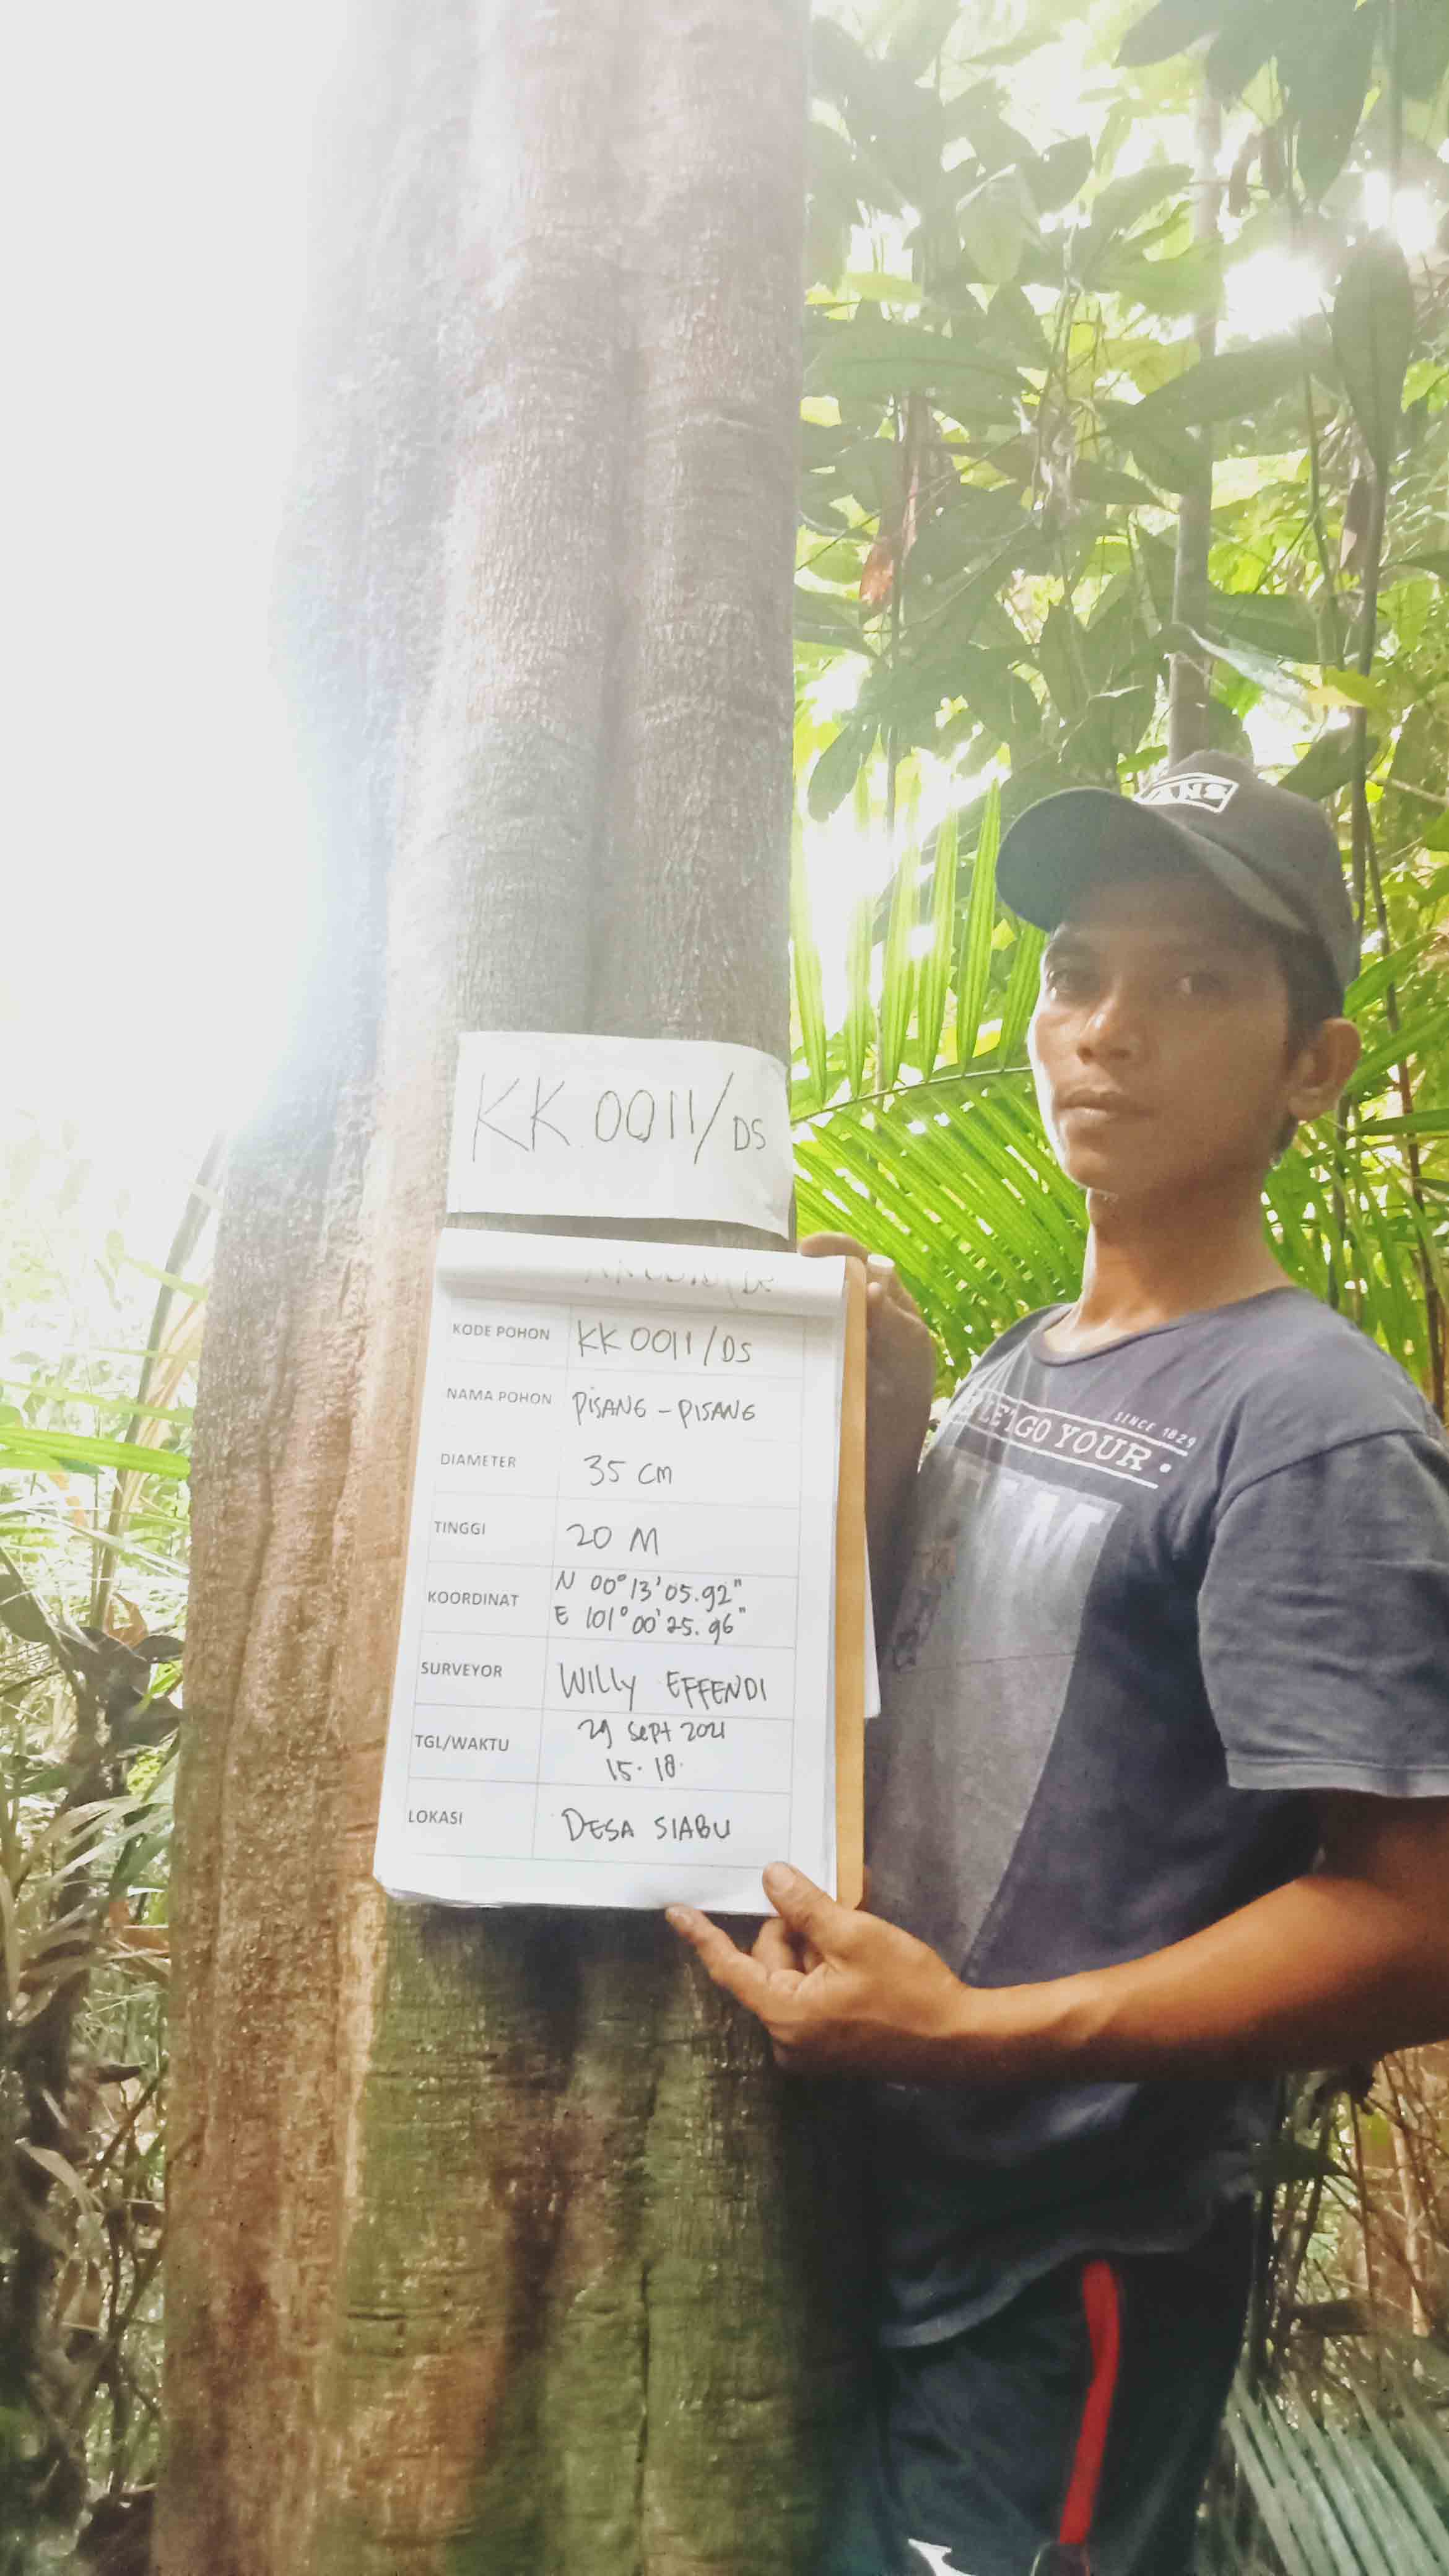 KK 0011/DS
KODE POHON KK 0011/DS
NAMA POHON PISANG - PISANG
DIAMETER 35 CM
TINGGI 20 M
KOORDINAT N 00° 13' 05.92"
E 101° 00' 25.96"
SURVEYOR WILLY EFFENDI
TGL/WAKTU 29 Sept 2021
15.18
LOKASI DESA SIABU
SINCE 1829
GO YOUR